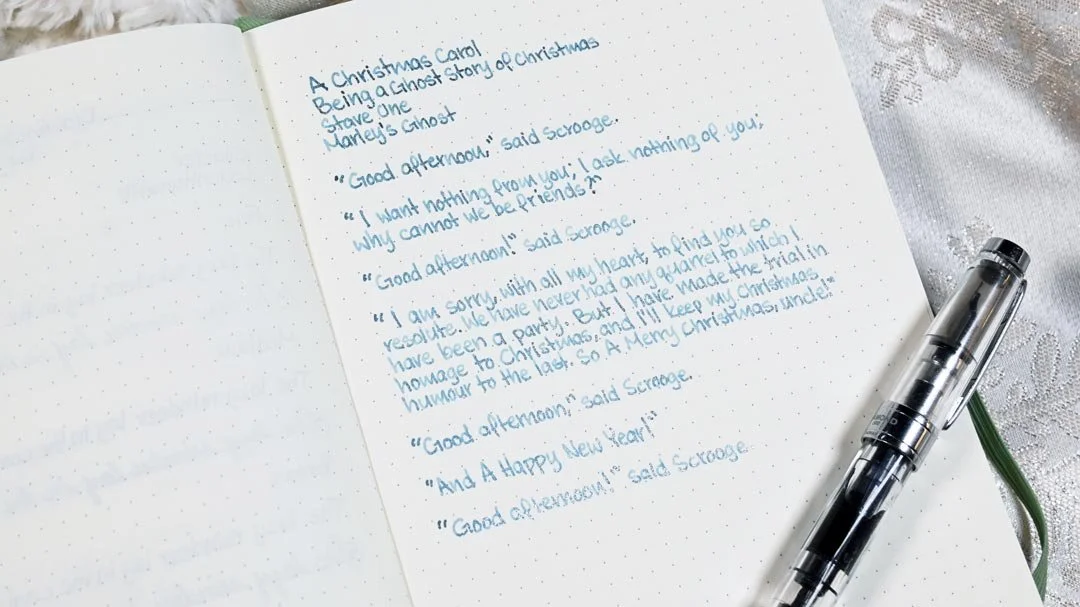 A Christmas Carol
Being a Ghost Story of Christmas
Stave One
Marley's Ghost
"Good afternoon," said Scrooge.
"I want nothing from you; I ask nothing of you;
why cannot we be friends?"
"Good afternoon!" said Scrooge.
"I am sorry, with all my heart, to find you so
resolute. We have never had any quarrel to which I
have been a party. But I have made the trial in
homage to Christmas, and I'll keep my Christmas
humour to the last. So A Merry Christmas, uncle!"
"Good afternoon," said Scrooge.
"And A Happy New Year!"
"Good afternoon!" said Scrooge